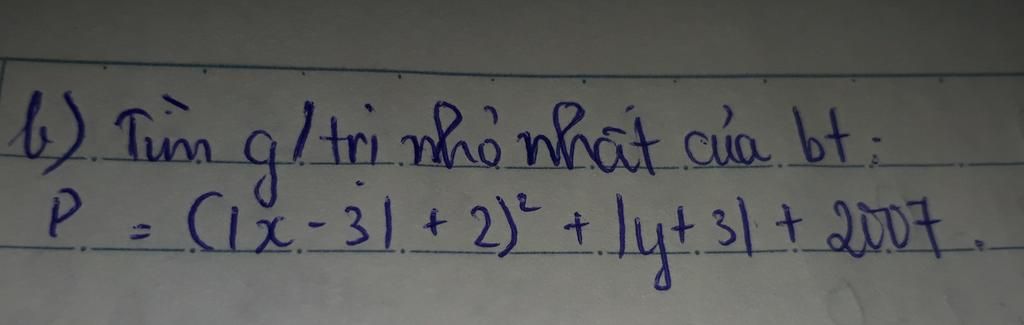 b) Tìm g/trị nhỏ nhất của bt:
P = (|x - 3| + 2)² + |y + 3| + 2007.